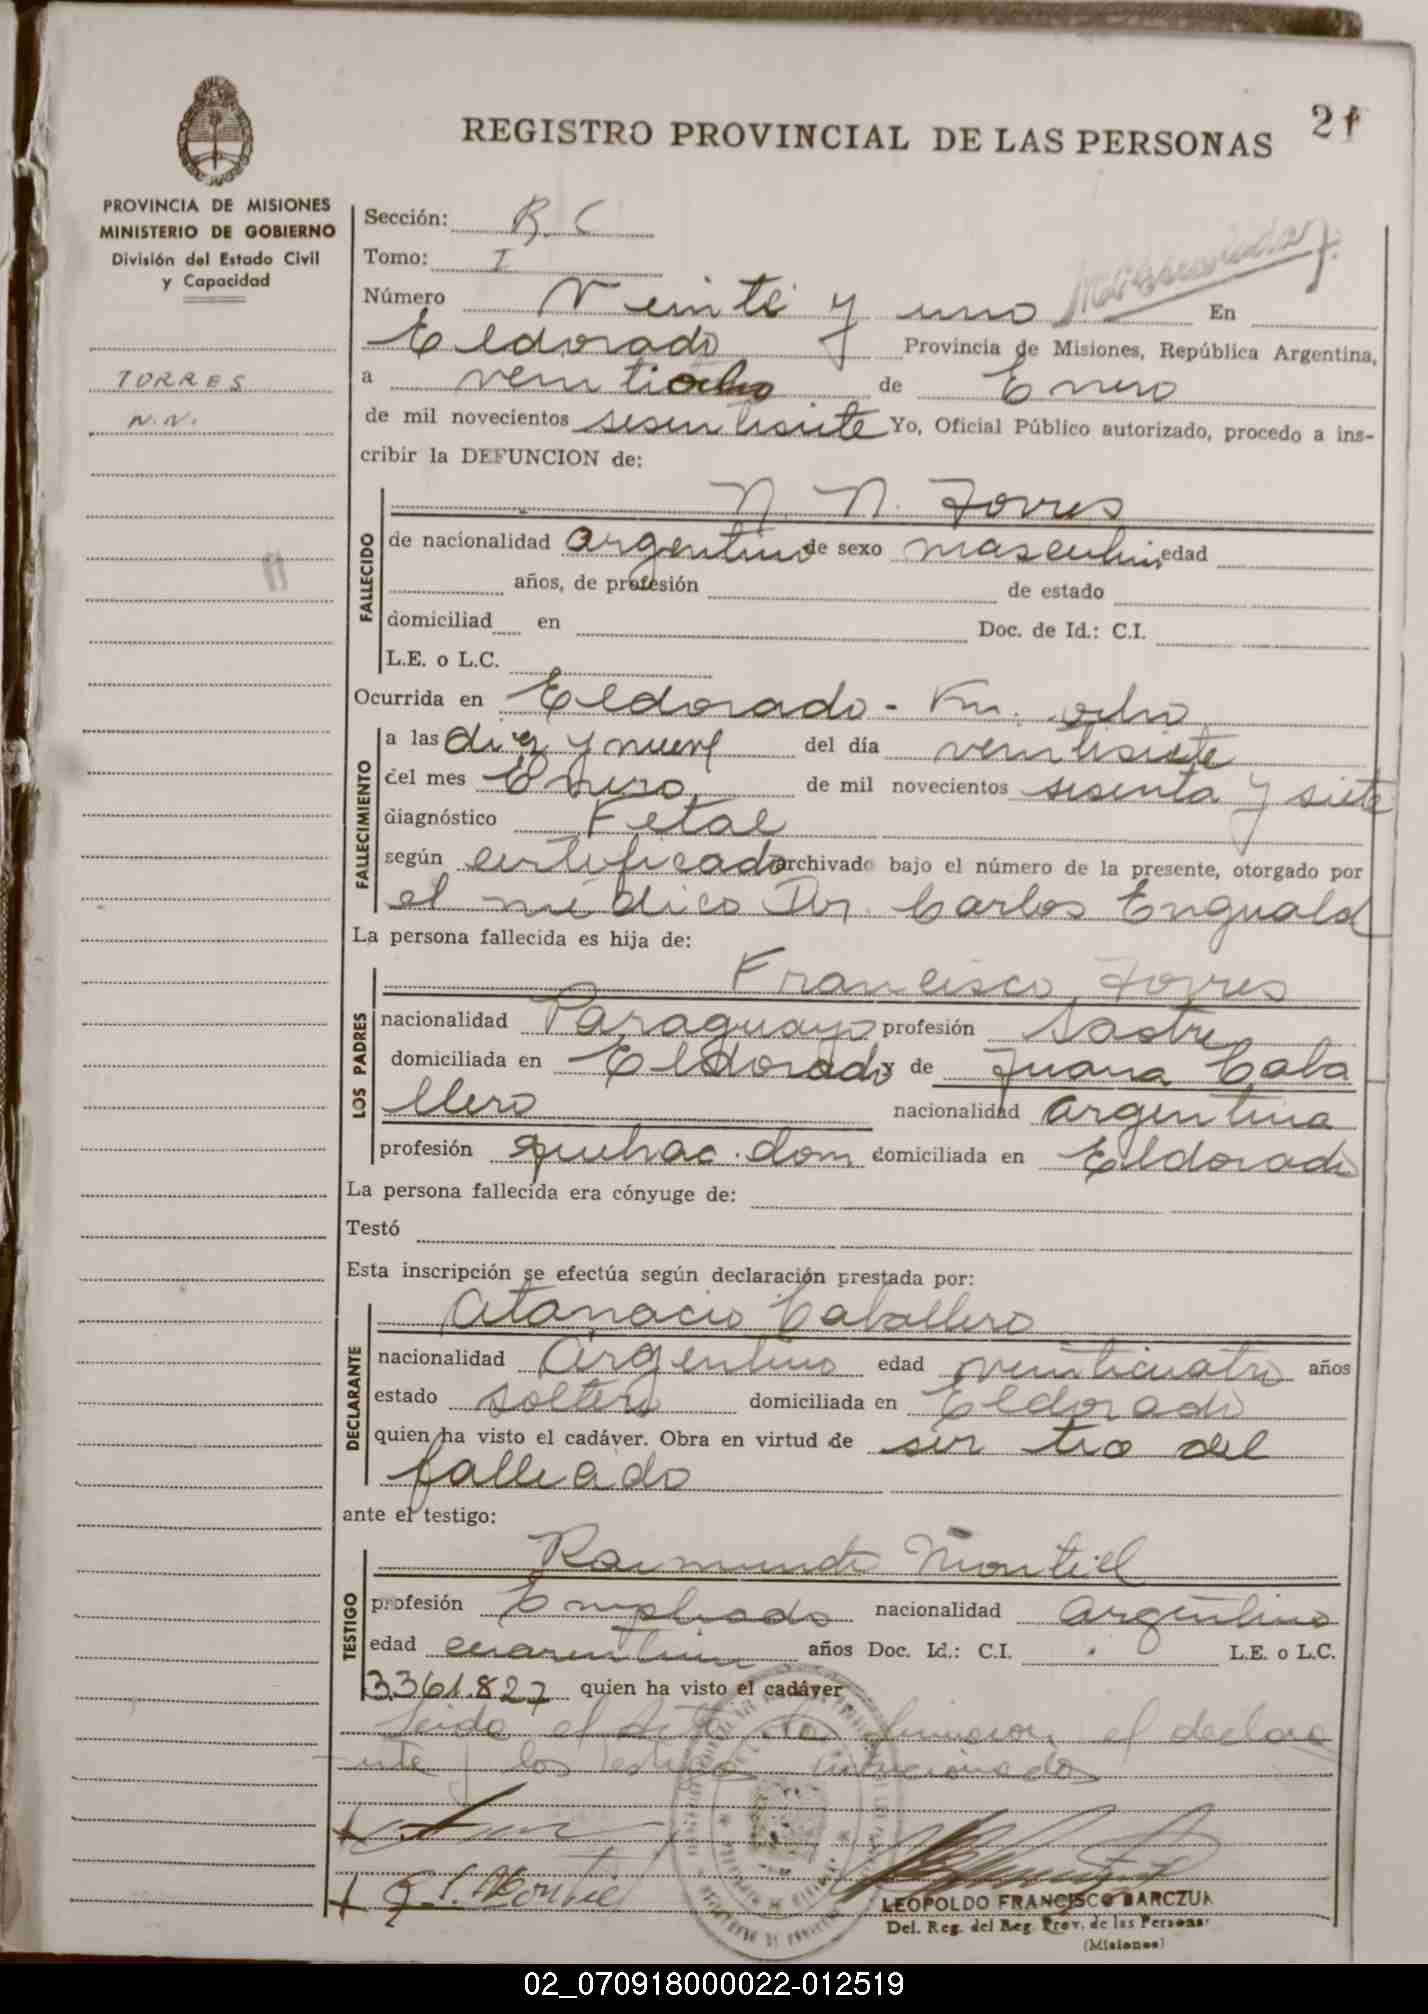 21
REGISTRO PROVINCIAL DE LAS PERSONAS
PROVINCIA DE MISIONES
MINISTERIO DE GOBIERNO
División del Estado Civil
y Capacidad
TORRES
N.N.
Sección: R. C
Tomo: I
Número Veinte y uno En
Eldorado Provincia de Misiones, República Argentina,
a veintiocho de Enero
de mil novecientos sesentisiete Yo, Oficial Público autorizado, procedo a ins-
cribir la DEFUNCION de:
N. N. Torres
FALLECIDO
de nacionalidad argentino de sexo masculino edad
años, de profesión de estado
domiciliad en Doc. de Id.: C.I.
L.E. o L.C.
Ocurrida en Eldorado - Km. ocho
FALLECIMIENTO
a las diez y nueve del día veintisiete
del mes Enero de mil novecientos sesenta y siete
diagnóstico Fetal
según certificado archivado bajo el número de la presente, otorgado por
el médico Dr. Carlos Enguald
La persona fallecida es hija de:
Francisco Torres
LOS PADRES
nacionalidad Paraguayo profesión Sastre
domiciliada en Eldorado y de Juana Caba
llero nacionalidad argentina
profesión quehac. dom domiciliada en Eldorado
La persona fallecida era cónyuge de:
Testó
Esta inscripción se efectúa según declaración prestada por:
Atanacio Caballero
DECLARANTE
nacionalidad Argentino edad veinticuatro años
estado soltero domiciliada en Eldorado
quien ha visto el cadáver. Obra en virtud de ser tio del
fallecido
ante el testigo:
Raimundo Montiel
TESTIGO
profesión Empleado nacionalidad argentino
edad años Doc. Id.: C.I. L.E. o L.C.
3.361.827 quien ha visto el cadáver
Leida el Acta la firmaron, el declara
nte y los testigos mencionados
R. Montiel
LEOPOLDO FRANCISCO BARCZUK
Del. Reg. del Reg. Prov. de las Personas
(Misiones)
02_070918000022-012519